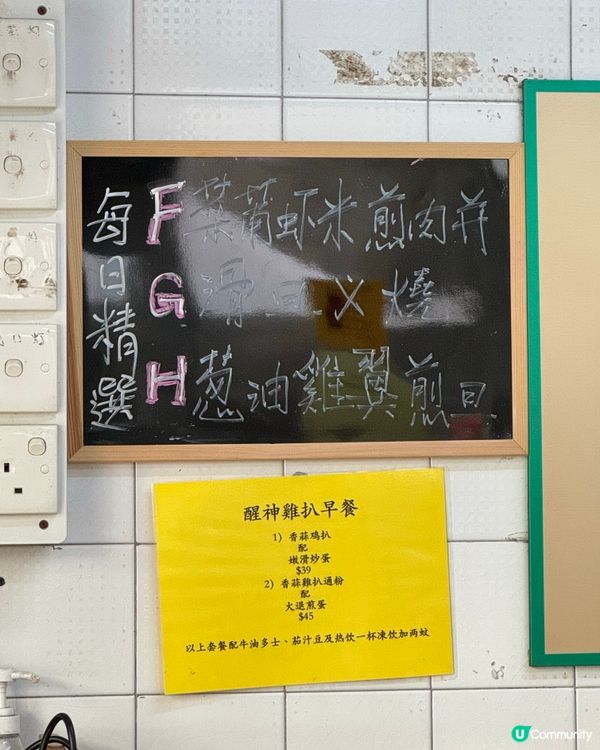 每日精選
F 菜蒲虾米煎肉并
G 滑旦义燒
H 葱油雞翼煎旦
醒神雞扒早餐
1) 香蒜鸡扒
配
嫩滑炒蛋
$39
2) 香蒜雞扒通粉
配
火退煎蛋
$45
以上套餐配牛油多士、茄汁豆及热饮一杯凍饮加两蚊
U Community